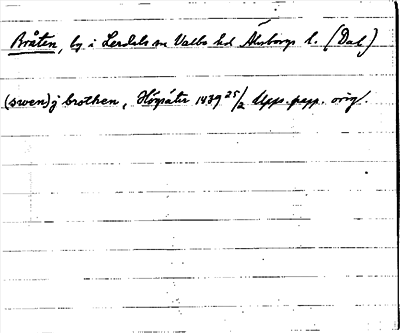 Bråten, by i Lerdals sn Valbo hd Älvsborgs l. (Dal)
(swen) j brothen, Högsäter 1439 25/2 Upps. papp. orig.